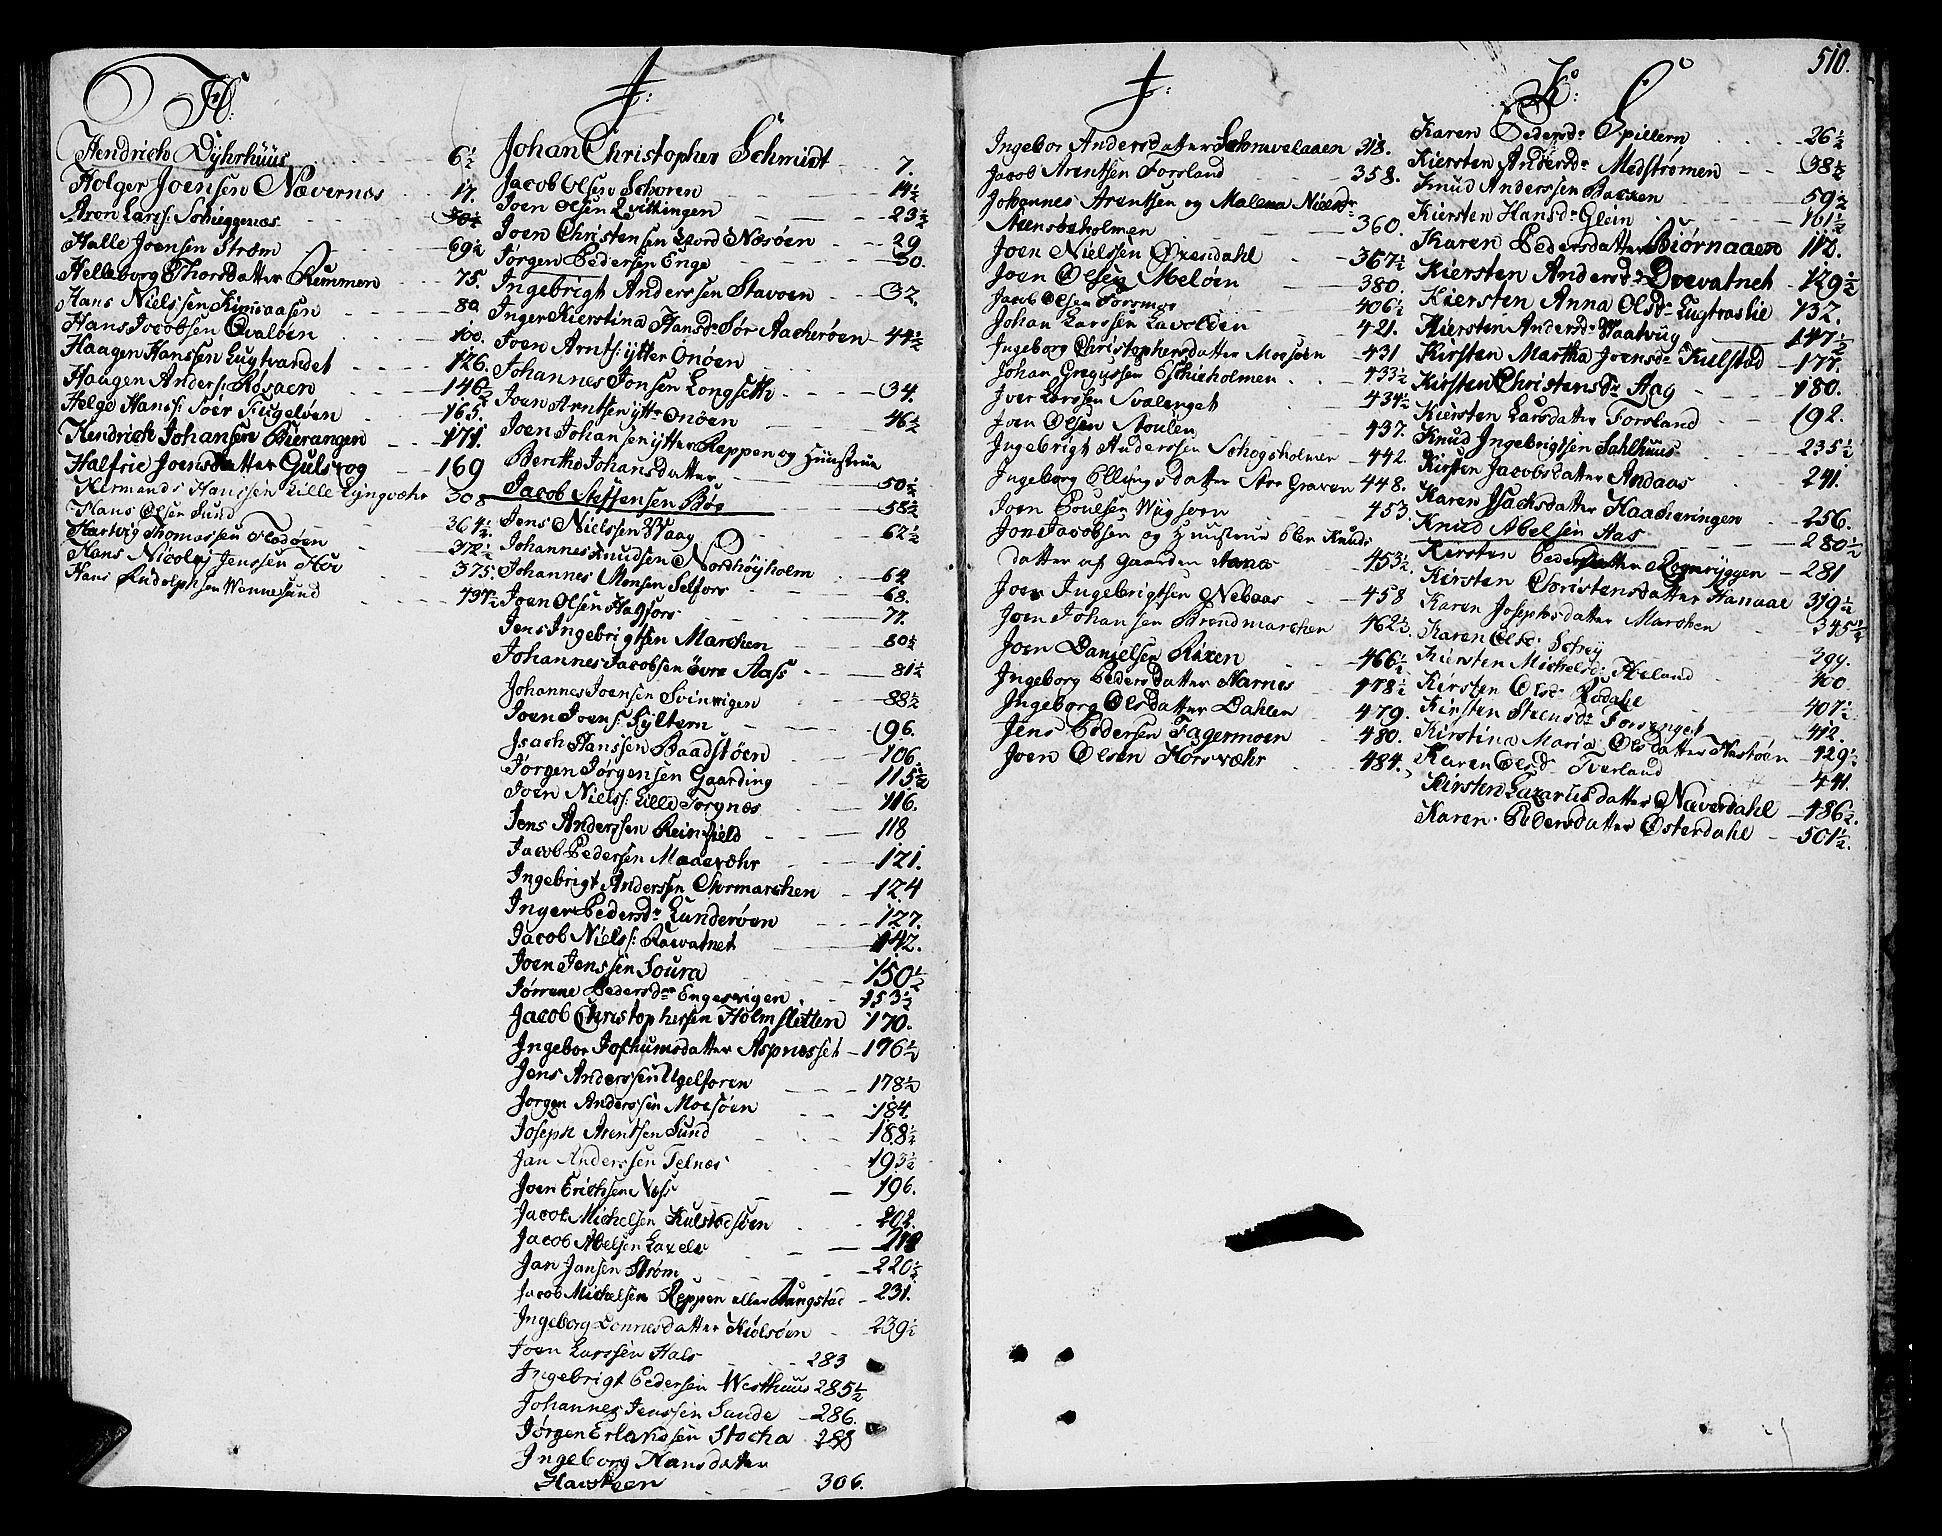 510.
H:
Hendrich Dyhrhuus 6½
Holger Joensen Nævernes 17.
Aron Larss:
Halle Joensen Strøm 69½
Helleborg Thorsdatter Remmen 75.
Hans Nielssen 80
Hans Jacobsen Qvalben 100.
Haagen Hanssen Lugtvandet 126.
Haagen Anders: Røsaaen 146½
Helge Hanss: Søer Fugeløen 165.
Hendrich Johansen Bierangen 171.
Halfrie Joensdatter Gulsvog 169
Hermands Hanssen Lille Lyngvæhr 308
Hans Olsen Sund 364½
Hartvig Thomassen Flodøen 372½
Hans Nicolay Jenssen 375.
Hans Rudolphsen Wennesund
J:
Johan Christopher Schmidt 7.
Jacob Olsen Schoren 14½
Joen Olsen Qvittingen 23½
Joen Christensen Nord Næsøen 29
Jørgen Pedersen Enge 30.
Ingebrigt Anderssen Stavoen 32.
Inger Kierstina Hansdr Sør Aacherøen 44½
Joen Arntss: ytter Onøen
Johannes Jonsen Longseth 34.
Joen Arntsen ytter Onøen 46½
Joen Johansen ytter Reppen og Huustrue
Berithe Johansdatter 50½
Jacob Steffensen Bøe 58½
Jens Nielssen Waag 62½
Johannes Knudsen Nordhøyholm 64
Johannes Monsen Selfors 68.
Joen Olsen Hagfors 77.
Jens Ingebrigtsen Marchen 80½
Johannes Jacobsen övre Aass 81½
Johannes Joensen Svinvigen 88½
Joen Joens: Syltern 96.
Isach Hanssen Baadstøen 106.
Jørgen Jørgensen Gaarding 115½
Joen Niels: Lille Torgnes 116.
Jens Anderssen Reinfield 118
Jacob Pedersen Maasvæhr 121.
Ingebrigt Anderssen Ohrmarchen 124
Inger Pedersdr Lunderøen 127.
Jacob Nielss: Raevatnet 142.
Joen Jenssen Soura 150½
Jørrene Pedersdr Engesvigen 153½
Jacob Christophersen Holmsletten 170.
Ingebor Jochumsdatter Aspnesset 176½
Jens Anderssen Ugelforen 178½
Jørgen Anderssen Moesøen 184.
Joseph Arentsen Sund 188½
Jan Anderssen Felnes 193½
Joen Erichsen Næss 196.
Jacob Michelsen Kulstadsøen 202.
Jacob Abelsen Laxele
Jan Jansen Strøm 220½
Jacob Michelsen Reppen eller Aangstad 231.
Ingeborg Lonnesdatter Kielsøen 239½
Joen Larssen Hals 283
Ingebrigt Pedersen Westhuus 285½
Johannes Jenssen Sande 286.
Jørgen Erlandsen Stocha 288
Ingeborg Hansdatter
Havsteen 306.
J:
Ingebor Andersdatter 218.
Jacob Arentsen Forsland 358.
Johannes Arentsen og Malena Nielsdr
Steensholmen 360.
Joen Nielssen Øxendahl 367½
Joen Olsen Meløen 380.
Jacob Olsen Forsmoe 406½
Johan Larssen Lavolden 421.
Ingeborg Christophersdatter Moesøen 431
Johan Gregussen Eschieholmen 433½
Iver Larssen Svalenget 434½
Joen Olsen Stoulen 437.
Ingebrigt Anderssen Schogsholmen 442.
Ingeborg Ellingsdatter Stor Graven 448.
Joen Poulsen Wigsoen 453
Jon Jacobsen og Huustrue Elen Knuds
datter af Gaarden 453½
Joen Ingebrigtsen Nebaas 458
Joen Johansen Brendmarchen 462½.
Joen Danielsen Rixen 466½
Ingeborg Pedersdatter Harnes 478½
Ingeborg Olsdatter Dahlen 479.
Jens Pedersen Fagermoen 480.
Joen Olsen Horsvæhr 484.
K:
Karen Pedersdr Spillern 26½
Kiersten Andersdr Medstrømen 38½
Knud Anderssen Backen 59½
Kiersten Hansdr Glein 101½
Karen Pedersdatter Biørnaaen 110.
Kiersten Andersdr Dvevatnet 129½
Kiersten Anna Olsdr Lugtraslie 132.
Kiersten Andersdr Waatvug 147½
Kirsten Martha Joensdr Kulstad 177.
Kirsten Christensdr Aag 180.
Kiersten Larsdatter Forsland 192.
Knud Ingebrigtsen Sahlhuus 235½
Kirsten Jacobsdatter Andaas 241.
Karen Isachsdatter Haacheringen 256.
Knud Abelsen Aas 280½
Kersten Pedersdatter Rognryggen 281
Kirsten Christensdatter Hanaae 319½
Karen Josephsdatter Marchen 345½
Karen Olsdr 399.
Kiersten Michelsdr Høland 400
Kirsten Olsdr 407½
Kirsten Steensdr Forsenget 412.
Kirstina Maria Olsdatter Næstøen 429½
Karen Olsdr Tverland 441.
Kirsten Lazarusdatter Næverdahl 486½.
Karen Pedersdatter Østerdahl 501½.